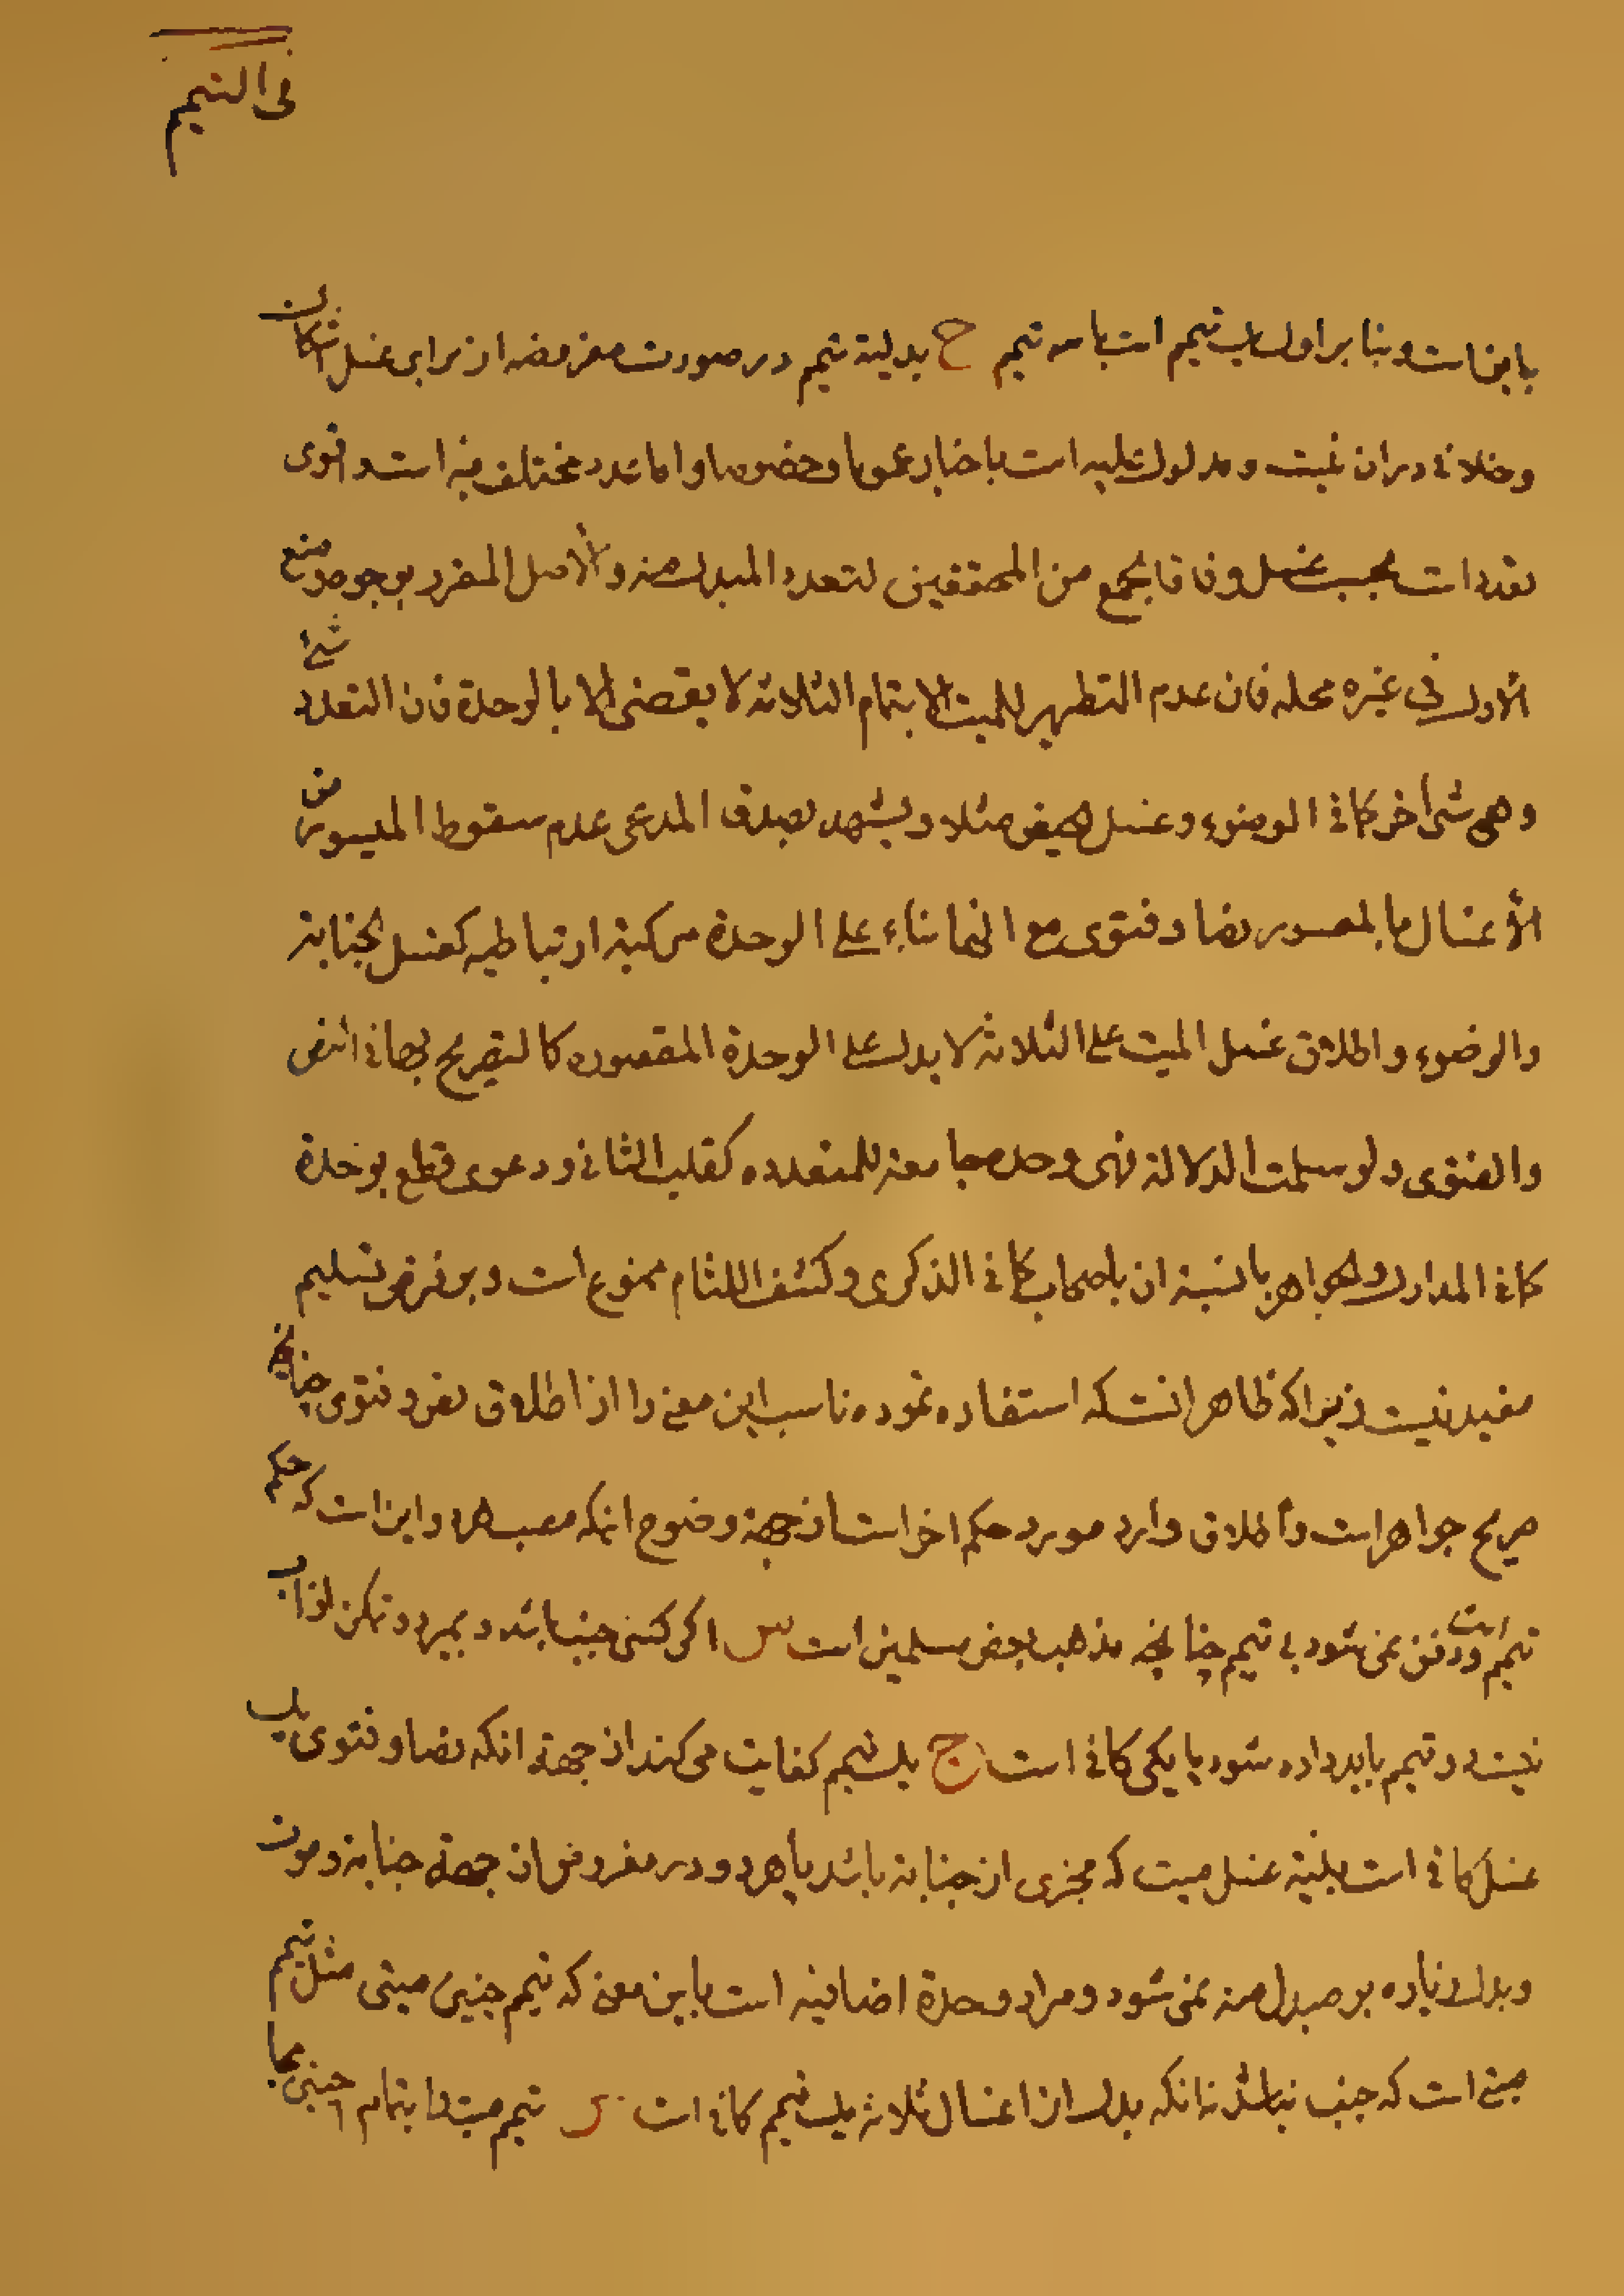 فی التیمم
با این است و بنا بر اول یک تیمم است یا سه تیمم ج بدلیة تیمم در صورت مفروضه از برای غسل اشکالی
و خلافی در ان نیست و مدلول علیه است باخبار عموما و خصوصا و اما تعدد مختلف فیه است و اقوی
تعدد است بحسب غسل وفاقا لجمع من المحققین لتعدد المبدل منه و الأصل المقرر بوجوهه منع
الأول فی غیره محله فان عدم التطهیر للمیت الا بتمام الثلاثه لا یقضی الا بالوحدة فان التعدد شیئ
و هی شئ اخر کما فی الوضوء و غسل الحیض مثلا و یشهد بصدق المدعی عدم سقوط المیسور من
الأغسال بالمعسور نصا و فتوی مع انها بناء علی الوحدة مرکبة ارتباطیه کغسل الجنابة
والوضوء و اطلاق غسل المیت علی الثلاثة لا یدل علی الوحدة المقصوده کالتصریح بها فی النص
والفتوی ولو سلمت الدلالة فهی وحده مجامعة للمتعدده کقلب الثانی و دعوی قطع بوحدة
کما فی المدارک و الجواهر یا نسبة ان باصحاب کما فی الذکری و کشف اللثام ممنوع است و بر فرض تسلیم
مفید نیست زیرا که ظاهر انست که استفاده نموده ناسب این معنی را از اطلاق نص و فتوی چنانچه
صریح جواهر است و اطلاق وارد مورد حکم اخر است از جهة وضوح انکه مصب هر دو این است که حکم
تیمم است و دفن نمی شود بی تیمم چنانچه مذهب بعض مسلمین است س اگر کسی جنب باشد و بمیرد و تمکن از اب
نیست دو تیمم باید داده شود یا یکی کافی است ج یک تیمم کفایت می کند از جهة انکه نصا و فتوی یک
غسل کافی است بنیة غسل میت که مجزی از جنابة باشد یا هر دو و در مفروض از جهة جنابة و موت
و بدل زیاده بر مبدل منه نمی شود و مراد وحدة اضافیه است باین معنی که تیمم چنین میتی مثل تیمم
میتی است که جنب نباشد نه انکه بدل از اغسال ثلاثة یک تیمم کافی است س تیمم میت را بتمام اجنبی بجا